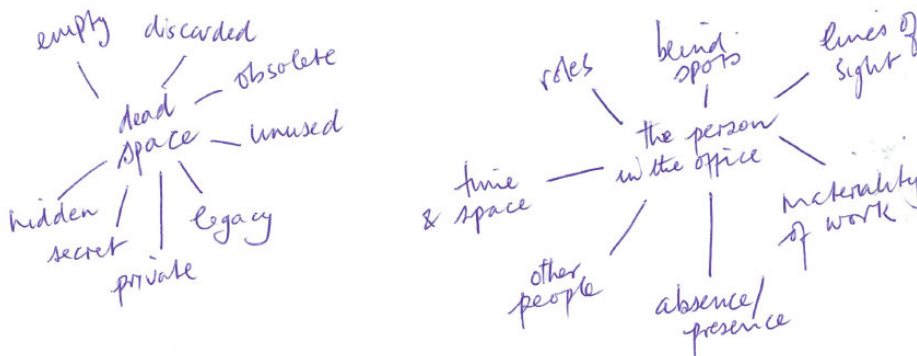 empty
discarded
obsolete
dead
space
unused
hidden
secret
private
legacy
roles
blind
spots
lines of
sight
the person
in the office
time
& space
materiality
of work
other
people
absence/
presence